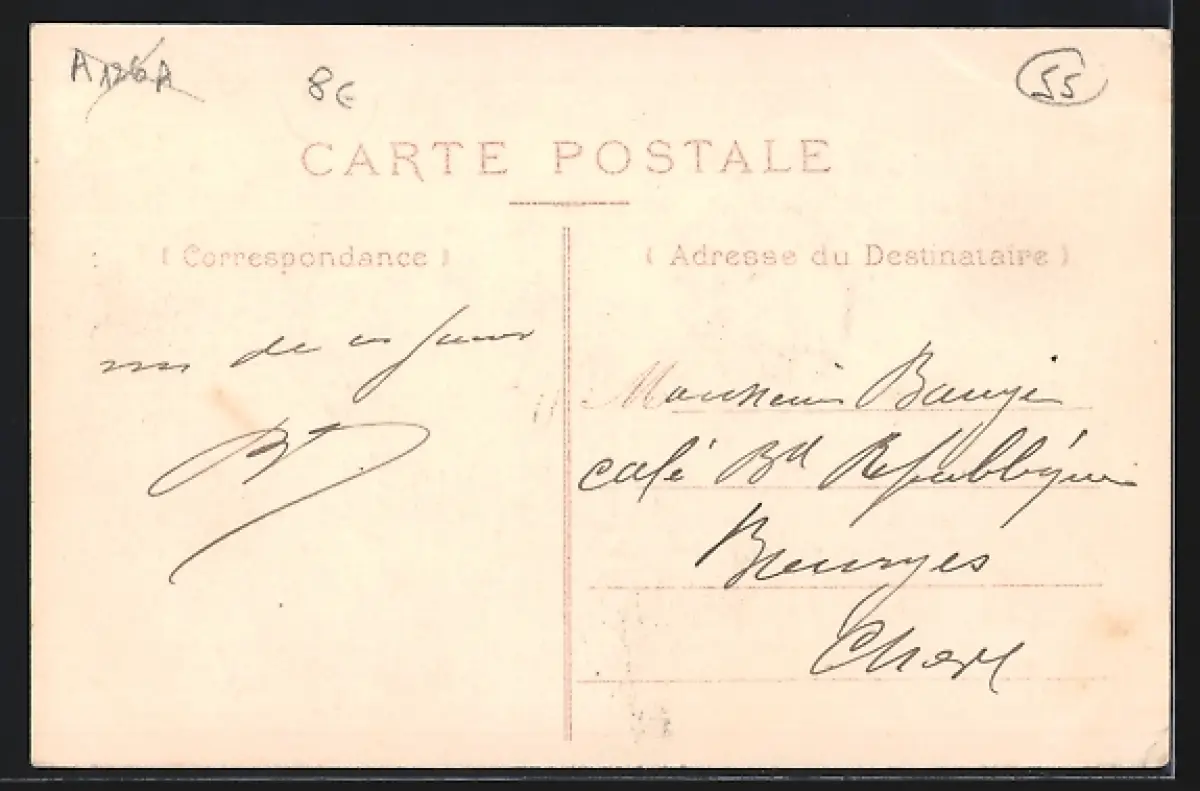 A126A 8€ 55
CARTE POSTALE
( Correspondance )
( Adresse du Destinataire )
de
Bt
Monsieur Baugé
café Bd République
Bourges
Cher